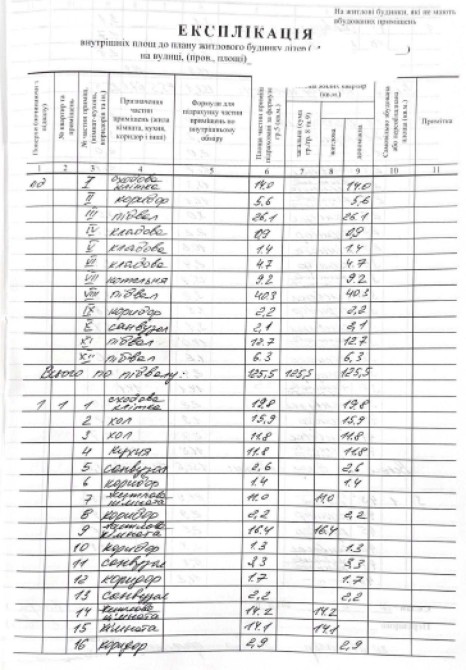 На житлові будинки, які не мають
вбудованих приміщень
ЕКСПЛІКАЦІЯ
внутрішніх площ до плану житлового будинку літер (
)
на вулиці, (пров., площі)
№ квартир та приміщень
Призначення частин приміщень (житлова кімната, кухня, коридор і інші)
Формули для підрахунку частин приміщень по внутрішньому обміру
Площа частин приміщ. підрахована за формулою гр.5 (кв.м.)
загальна (сума гр.гр. 8 и 9)
житлова
допоміжна
Самовільно збудована або переобладнана площа (кв.м.)
Примітка
1 2 3 4 5 6 7 8 9 10 11
од I сходова клітка 14.0 14.0
II коридор 5.6 5.6
III підвал 26.1 26.1
IV кладова 0,9 0,9
V кладова 1.4 1.4
VI кладова 4.7 4.7
VII котельня 9.2 9.2
VIII підвал 40.3 40.3
IX коридор 2,2 2,2
X санвузол 2,1 2,1
XI підвал 12.7 12.7
XII підвал 6.3 6,3
Всього по підвалу: 125,5 125,5 125,5
1 1 1 сходова клітка 19.8 19.8
2 хол 15,9 15,9
3 хол 11.8 11.8
4 кухня 11.8 11.8
5 санвузол 2,6 2,6
6 коридор 1.4 1.4
7 житлова кімната 11.0 11.0
8 коридор 2,2 2,2
9 житлова кімната 16.4 16.4
10 коридор 1.3 1.3
11 санвузол 3.3 3.3
12 коридор 1.7 1.7
13 санвузол 2,2 2,2
14 житлова кімната 14.2 14.2
15 кімната 14.1 14.1
16 коридор 2,9 2,9